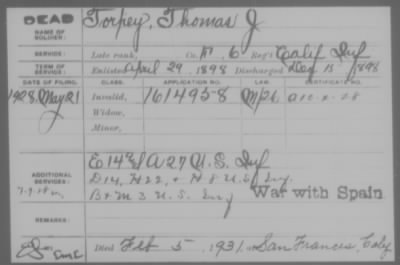 DEAD
NAME OF SOLDIER:
Torpey, Thomas J
SERVICE:
Late rank, Co. M, 6 Reg't Calif Inf
TERM OF SERVICE:
Enlisted April 29, 1898 Discharged Dec 15, 1898
DATE OF FILING. CLASS. APPLICATION NO. LAW. CERTIFICATE NO.
1928 May 21 Invalid, 1614958
Widow,
Minor,
E 14 & A 27 U.S. Inf
ADDITIONAL SERVICES:
D 14, H 22, + H 8 U.S. Inf.
B + M 3 U.S. Inf War with Spain
REMARKS:
Died Feb 5, 1931, San Francis, Calif